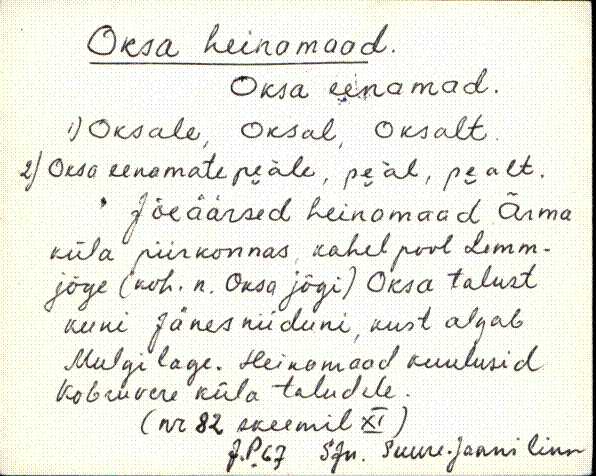 Oksa heinamaad.
Oksa eenamad.
1) Oksale, Oksal, Oksalt.
2) Oksa eenamate peäle, peäl, pealt.
Jõeäärsed heinamaad Ärma
küla piirkonnas, kahel pool Lemm-
jõge (koh. n. Oksa jõgi) Oksa talust
kuni Jänesniiduni, kust algab
Mulgi lage. Heinamaad kuulusid
Kobruvere küla taludele.
(nr 82 skeemil XI)
J.P. 67 SJn. Suure-Jaani linn